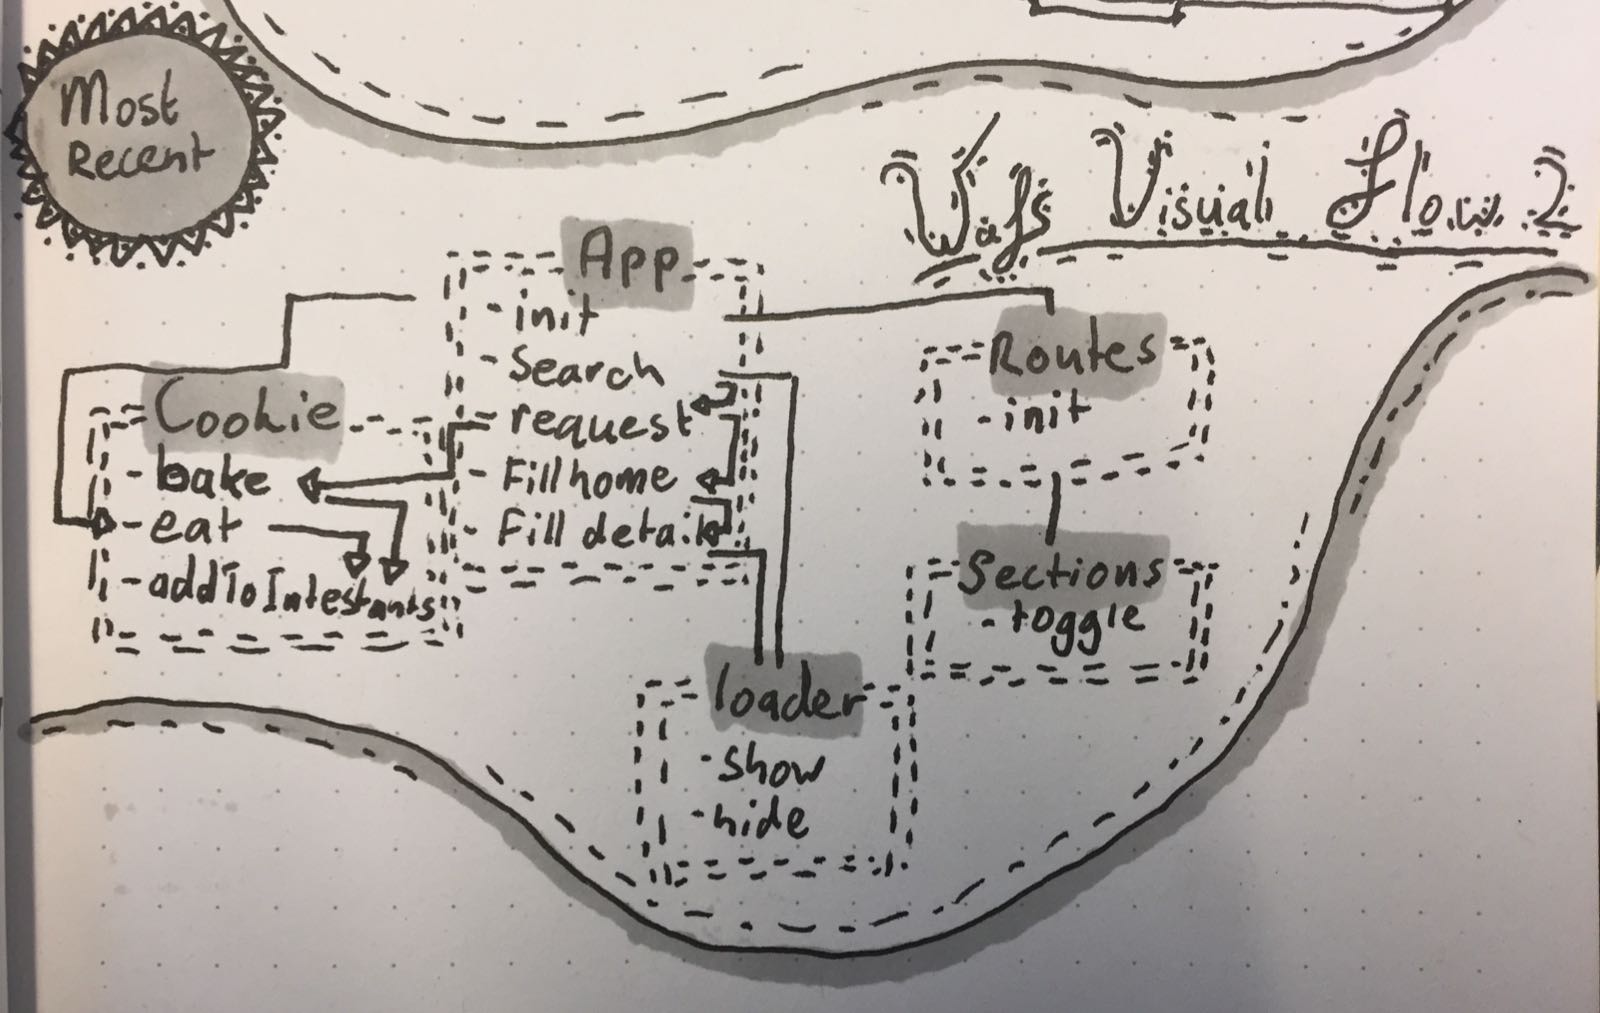 Most
Recent
Wafs Visual Flow 2
App
- init
- Search
- request
- Fill home
- Fill details
Cookie
- bake
- eat
- addToIntestants
Routes
- init
Sections
- toggle
loader
- show
- hide